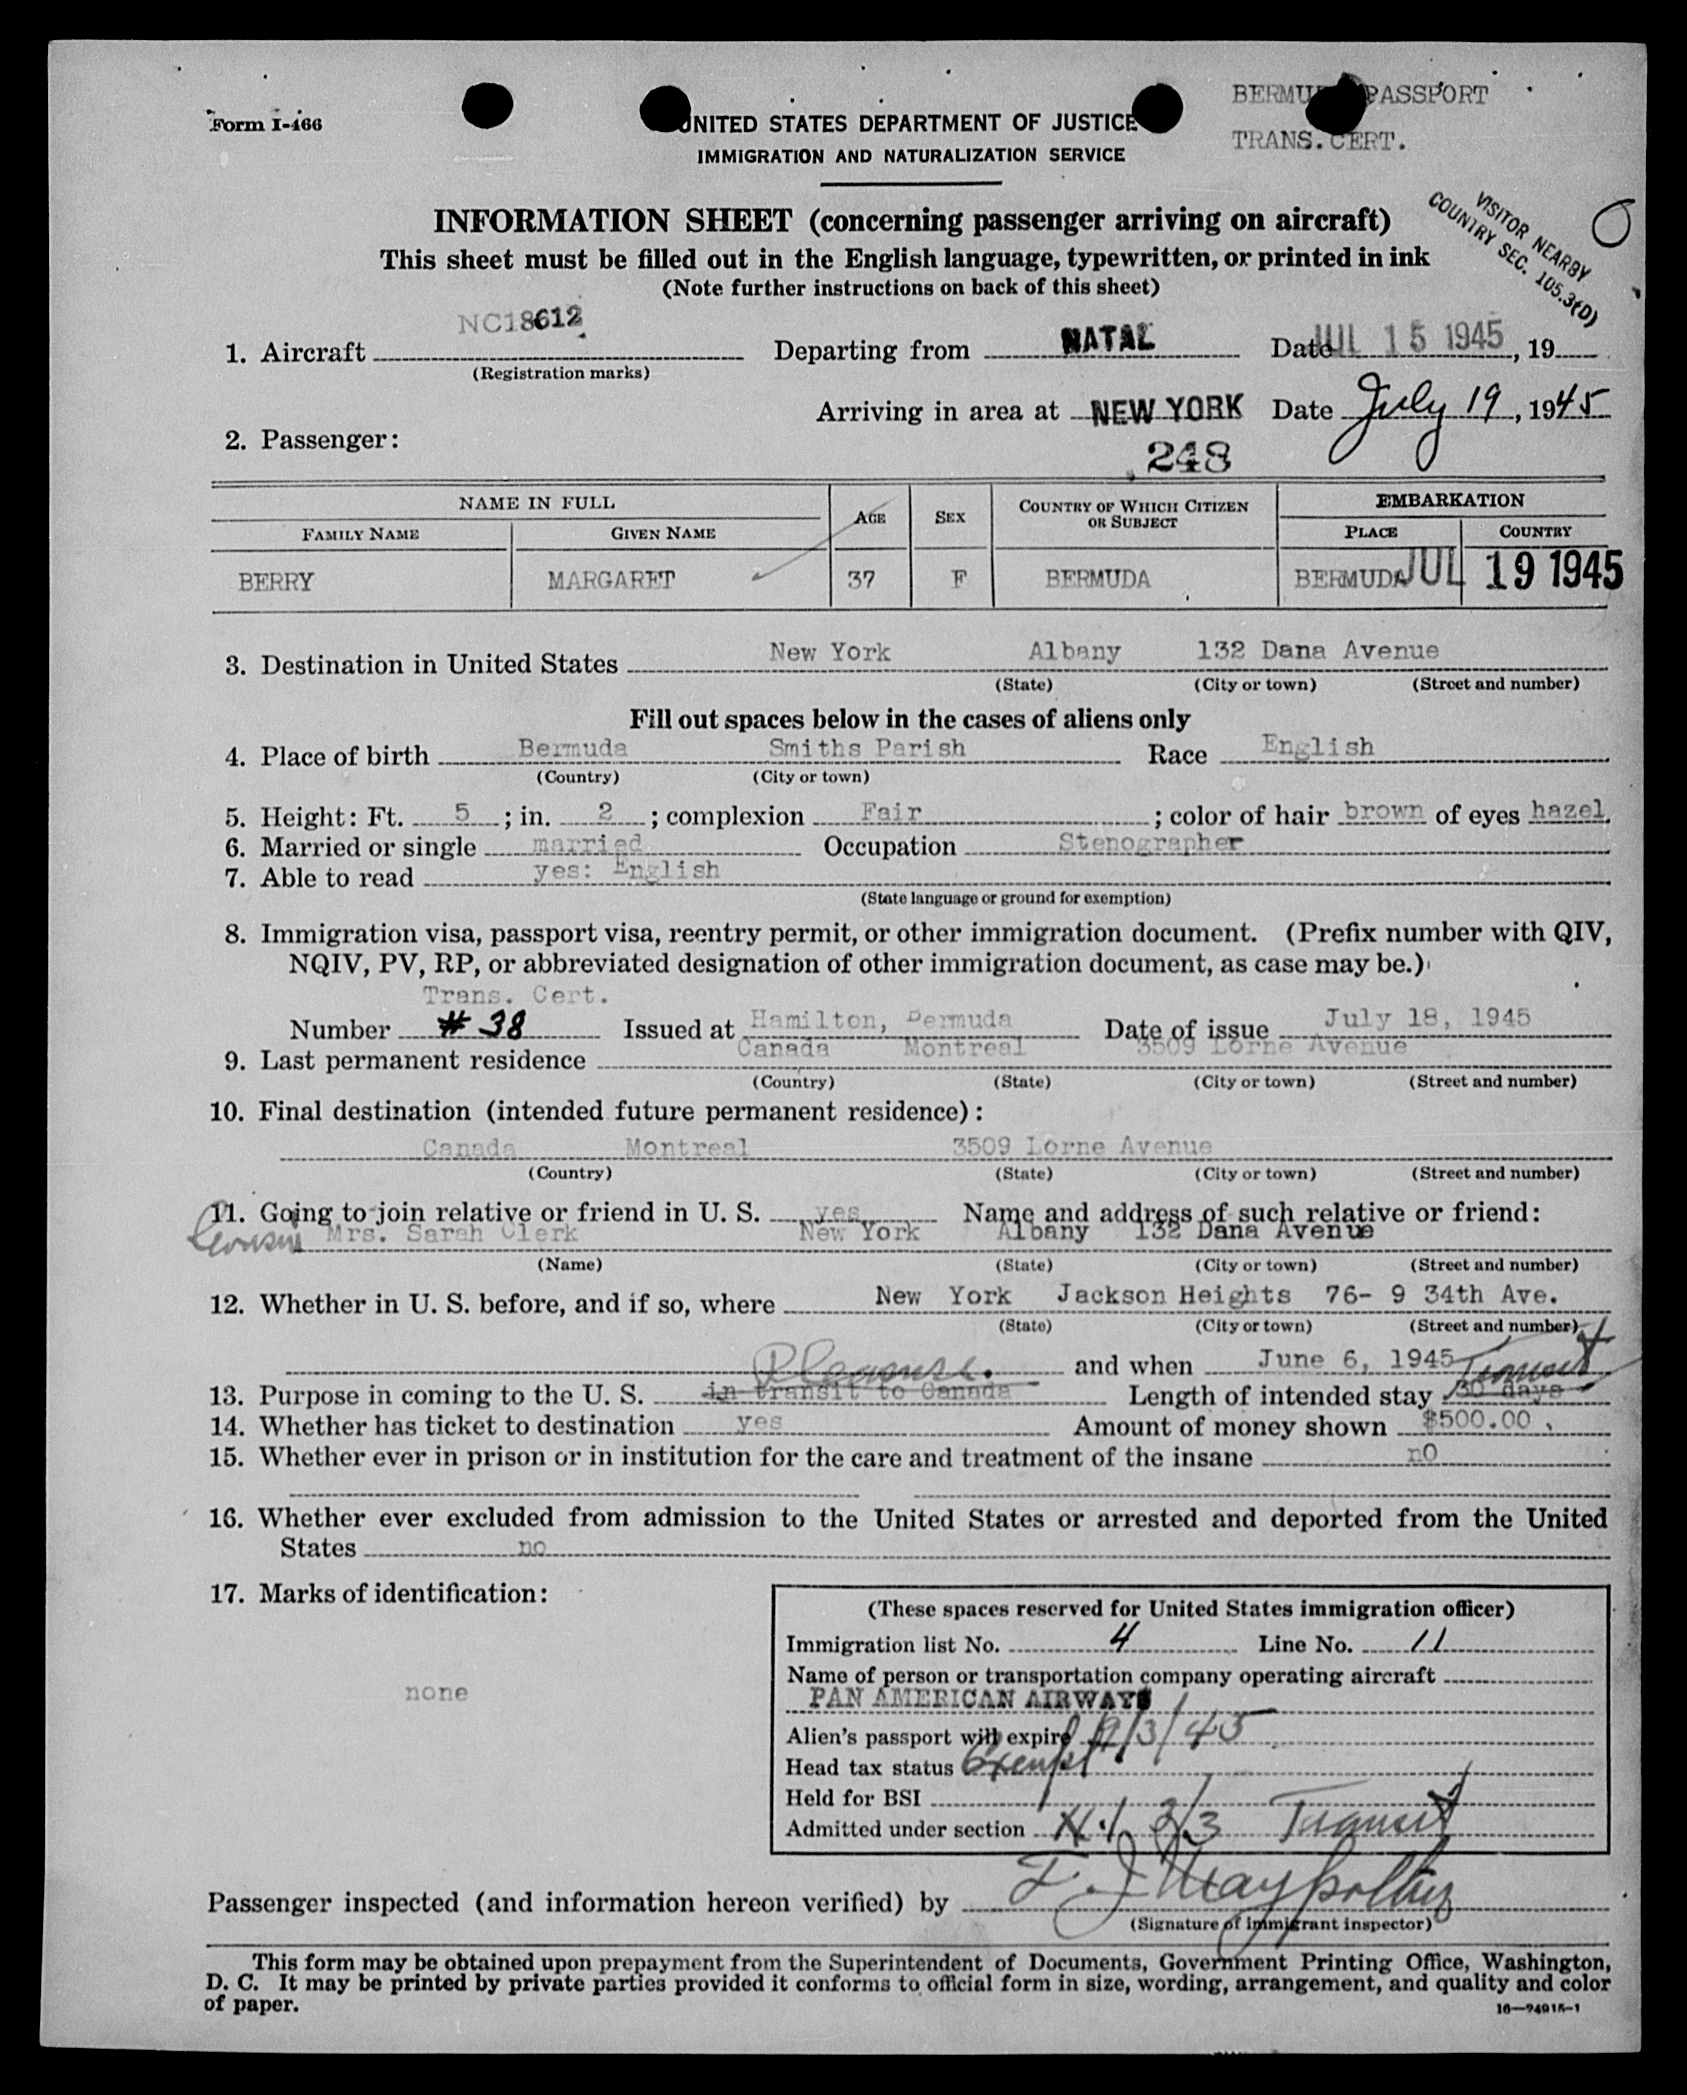 Form I-466
UNITED STATES DEPARTMENT OF JUSTICE
IMMIGRATION AND NATURALIZATION SERVICE
BERMUDA PASSPORT
TRANS. CERT.
VISITOR NEARBY
COUNTRY SEC. 105.3(D)
INFORMATION SHEET (concerning passenger arriving on aircraft)
This sheet must be filled out in the English language, typewritten, or printed in ink
(Note further instructions on back of this sheet)
1. Aircraft NC18612 Departing from NATAL Date JUL 15 1945, 19
(Registration marks)
Arriving in area at NEW YORK Date July 19, 1945
2. Passenger:
248
NAME IN FULL AGE SEX COUNTRY OF WHICH CITIZEN OR SUBJECT EMBARKATION
FAMILY NAME GIVEN NAME PLACE COUNTRY
BERRY MARGARET 37 F BERMUDA BERMUDA JUL 19 1945
3. Destination in United States New York Albany 132 Dana Avenue
(State) (City or town) (Street and number)
Fill out spaces below in the cases of aliens only
4. Place of birth Bermuda Smiths Parish Race English
(Country) (City or town)
5. Height: Ft. 5; in. 2; complexion Fair; color of hair brown of eyes hazel.
6. Married or single married Occupation Stenographer
7. Able to read yes: English
(State language or ground for exemption)
8. Immigration visa, passport visa, reentry permit, or other immigration document. (Prefix number with QIV,
NQIV, PV, RP, or abbreviated designation of other immigration document, as case may be.)
Trans. Cert.
Number # 38 Issued at Hamilton, Bermuda Date of issue July 18, 1945
9. Last permanent residence Canada Montreal 3509 Lorne Avenue
(Country) (State) (City or town) (Street and number)
10. Final destination (intended future permanent residence):
Canada Montreal 3509 Lorne Avenue
(Country) (State) (City or town) (Street and number)
11. Going to join relative or friend in U. S. yes Name and address of such relative or friend:
Cousin Mrs. Sarah Clerk New York Albany 132 Dana Avenue
(Name) (State) (City or town) (Street and number)
12. Whether in U. S. before, and if so, where New York Jackson Heights 76- 9 34th Ave.
(State) (City or town) (Street and number)
Pleasure. and when June 6, 1945 Transit
13. Purpose in coming to the U. S. in transit to Canada Length of intended stay 30 days
14. Whether has ticket to destination yes Amount of money shown $500.00
15. Whether ever in prison or in institution for the care and treatment of the insane no
16. Whether ever excluded from admission to the United States or arrested and deported from the United
States no
17. Marks of identification:
none
(These spaces reserved for United States immigration officer)
Immigration list No. 4 Line No. 11
Name of person or transportation company operating aircraft
PAN AMERICAN AIRWAYS
Alien's passport will expire 9/3/45
Head tax status Exempt
Held for BSI
Admitted under section 3/3 Transit
Passenger inspected (and information hereon verified) by F. J.
(Signature of immigrant inspector)
This form may be obtained upon prepayment from the Superintendent of Documents, Government Printing Office, Washington,
D. C. It may be printed by private parties provided it conforms to official form in size, wording, arrangement, and quality and color
of paper.
16—24915-1